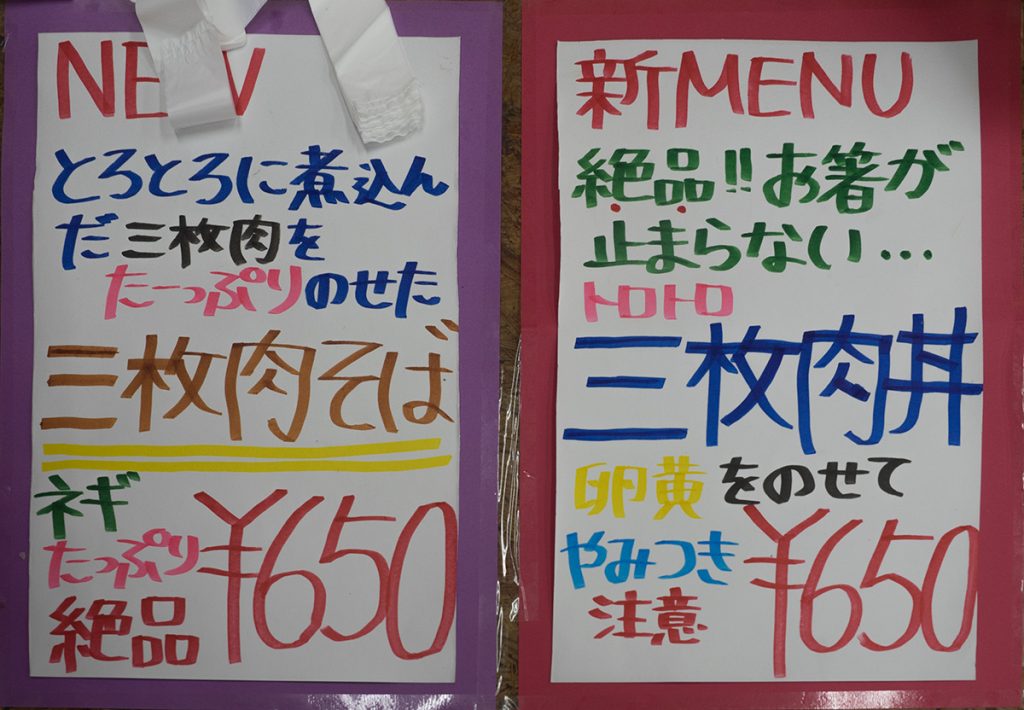 NEW
とろとろに煮込ん
だ三枚肉を
たーっぷりのせた
三枚肉そば
ネギ
たっぷり
絶品
¥650
新MENU
絶品!!お箸が
止まらない...
トロトロ
三枚肉丼
卵黄をのせて
やみつき
注意
¥650